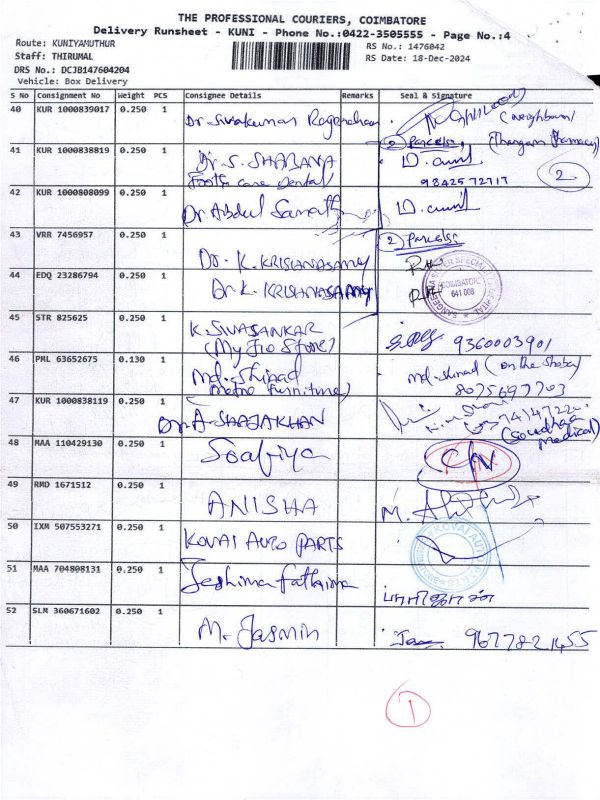 THE PROFESSIONAL COURIERS, COIMBATORE
Delivery Runsheet - KUNI - Phone No.:0422-3505555 - Page No.:4
Route: KUNIYAMUTHUR
RS No.: 1476042
Staff: THIRUMAL
RS Date: 18-Dec-2024
DRS No.: DCJB147604204
Vehicle: Box Delivery
S No Consignment No Weight PCS Consignee Details Remarks Seal & Signature
40 KUR 1000839017 0.250 1 Dr. Sivakumar (Neighbour)
(Thangam Pharmacy)
② Parcels,
41 KUR 1000838819 0.250 1 Dr. S. SHABANA
Tooth care Dental 9842572717
②
42 KUR 1000808099 0.250 1 Dr Abdul
43 VRR 7456957 0.250 1 Dr. K. KRISHNASAMY
② Parcels
44 EDQ 23286794 0.250 1 Dr. K. KRISHNASAMY
COIMBATORE
641 008
45 STR 825625 0.250 1 K. SIVASANKAR 9360003901
(My Jio Store)
46 PML 63652675 0.130 1 Md. Shinad md. shinad
(Metro furniture) 8075697703
47 KUR 1000838119 0.250 1 Dr. A. SHAJAKHAN
(Soudhaa Medical)
48 MAA 110429130 0.250 1 Soafiya C/N
49 RMD 1671512 0.250 1 ANISHA
50 IXM 507553271 0.250 1 KOVAI AUTO PARTS
51 MAA 704808131 0.250 1 Jeshima fathima
52 SLM 360671602 0.250 1 M. Jasmin 9677821455
①